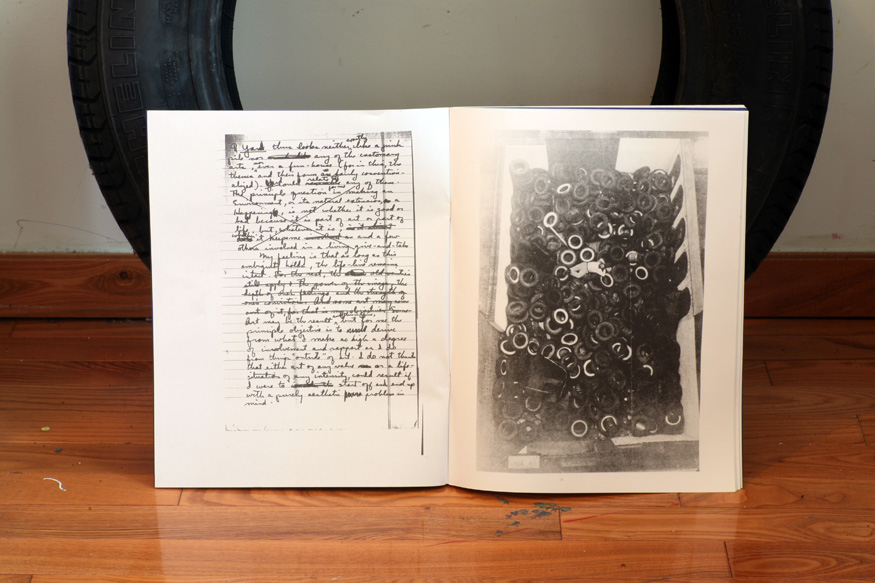 HELIN
A Yard thus looks neither exactly like a junk
pile nor any of the customary
arts, even a fun-house (for in this, the
theme and their form is fairly convention-
alized). could relate to any of them
The principle question in making an
Environment, or its natural extension, a
Happening, is not whether it is good or
bad because it is part of art or part of
life, but, whatever it is,
it keeps me and a few
others involved in a living give-and-take
My feeling is that as long as this
ambiguity holds, the life-line remains
intact. For the rest, the old
still apply: the power of the image, the
depth of feelings and the strength of
one's convictions. And
out of it, for that is
Art may be the result, but for me the
principle objective is to derive
from what I make as high a degree
of involvement and rapport as I do
from things "outside" of art. I do not think
that either art of any value or a life-
situation of any intensity, could result if
I were to start off and end up
with a purely aesthetic problem in
mind